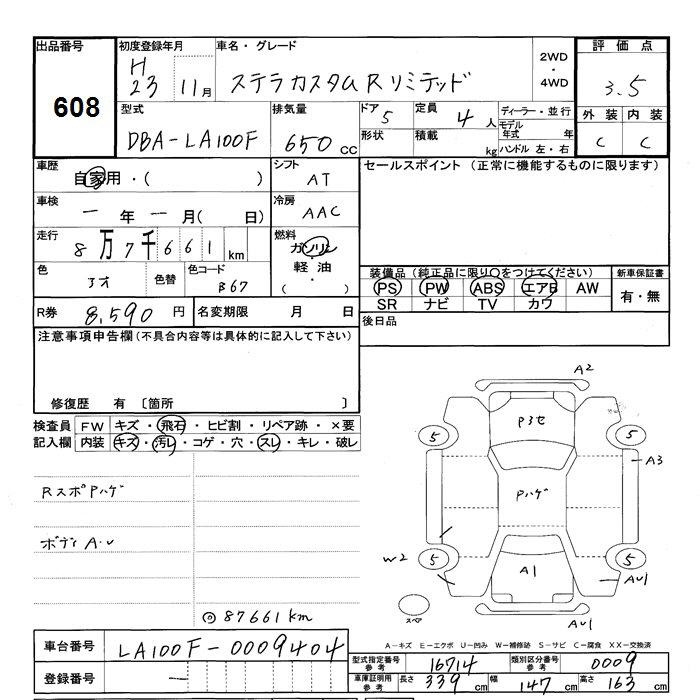 出品番号 初度登録年月 車名・グレード 2WD・4WD 評価点
608 H23 11月 ステラカスタムRリミテッド 3.5
型式 排気量 ドア 5 定員 4人 ディーラー・並行 外装 内装
DBA-LA100F 650cc 形状 積載 kg モデル年式 年 ハンドル 左・右 C C
車歴 自家用・( ) シフト AT セールスポイント (正常に機能するものに限ります)
車検 一年一月( 日) 冷房 AAC
走行 8万7千661km 燃料 ガソリン 軽油 ( )
色 アオ 色替 色コード B67
装備品(純正品に限り○をつけてください) 新車保証書
PS PW ABS エアB AW 有・無
SR ナビ TV カワ
R券 8,590円 名変期限 月 日 後日品
注意事項申告欄(不具合内容等は具体的に記入して下さい)
修復歴 有 〔箇所 〕
検査員 FW キズ・飛石・ヒビ割・リペア跡・×要
記入欄 内装 キズ・汚レ・コゲ・穴・スレ・キレ・破レ
RスポPハゲ
ボディA・U
◎87661km
A2
P3セ
5 5
A3
Pハゲ
W2 5 5
A1
AU1
スペア
AU1
A-キズ E-エクボ U-凹み W-補修跡 S-サビ C-腐食 XX-交換済
車台番号 LA100F-0009404
登録番号 一
型式指定番号 参考 16714 類別区分番号 参考 0009
車庫証明用 参考 長さ 339cm 幅 147cm 高さ 163cm